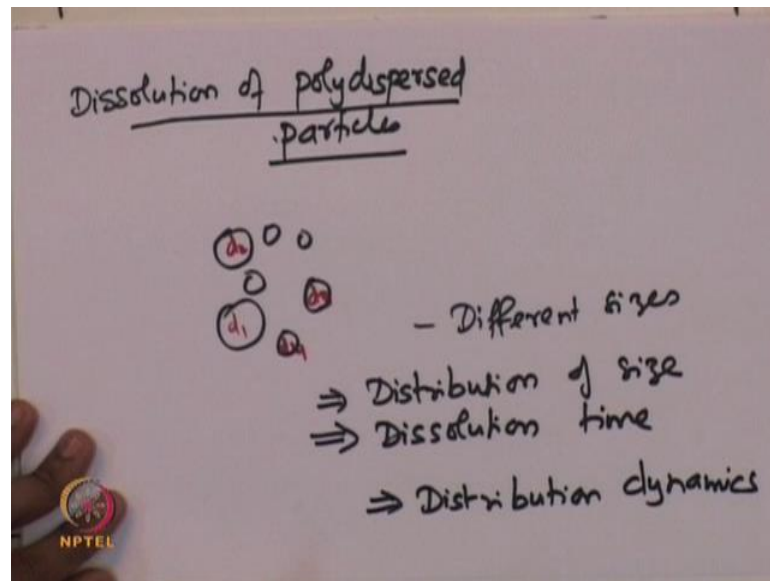 Dissolution of polydispersed
particles
d2
d1
d3
d4
- Different sizes
⇒ Distribution of size
⇒ Dissolution time
⇒ Distribution dynamics
NPTEL